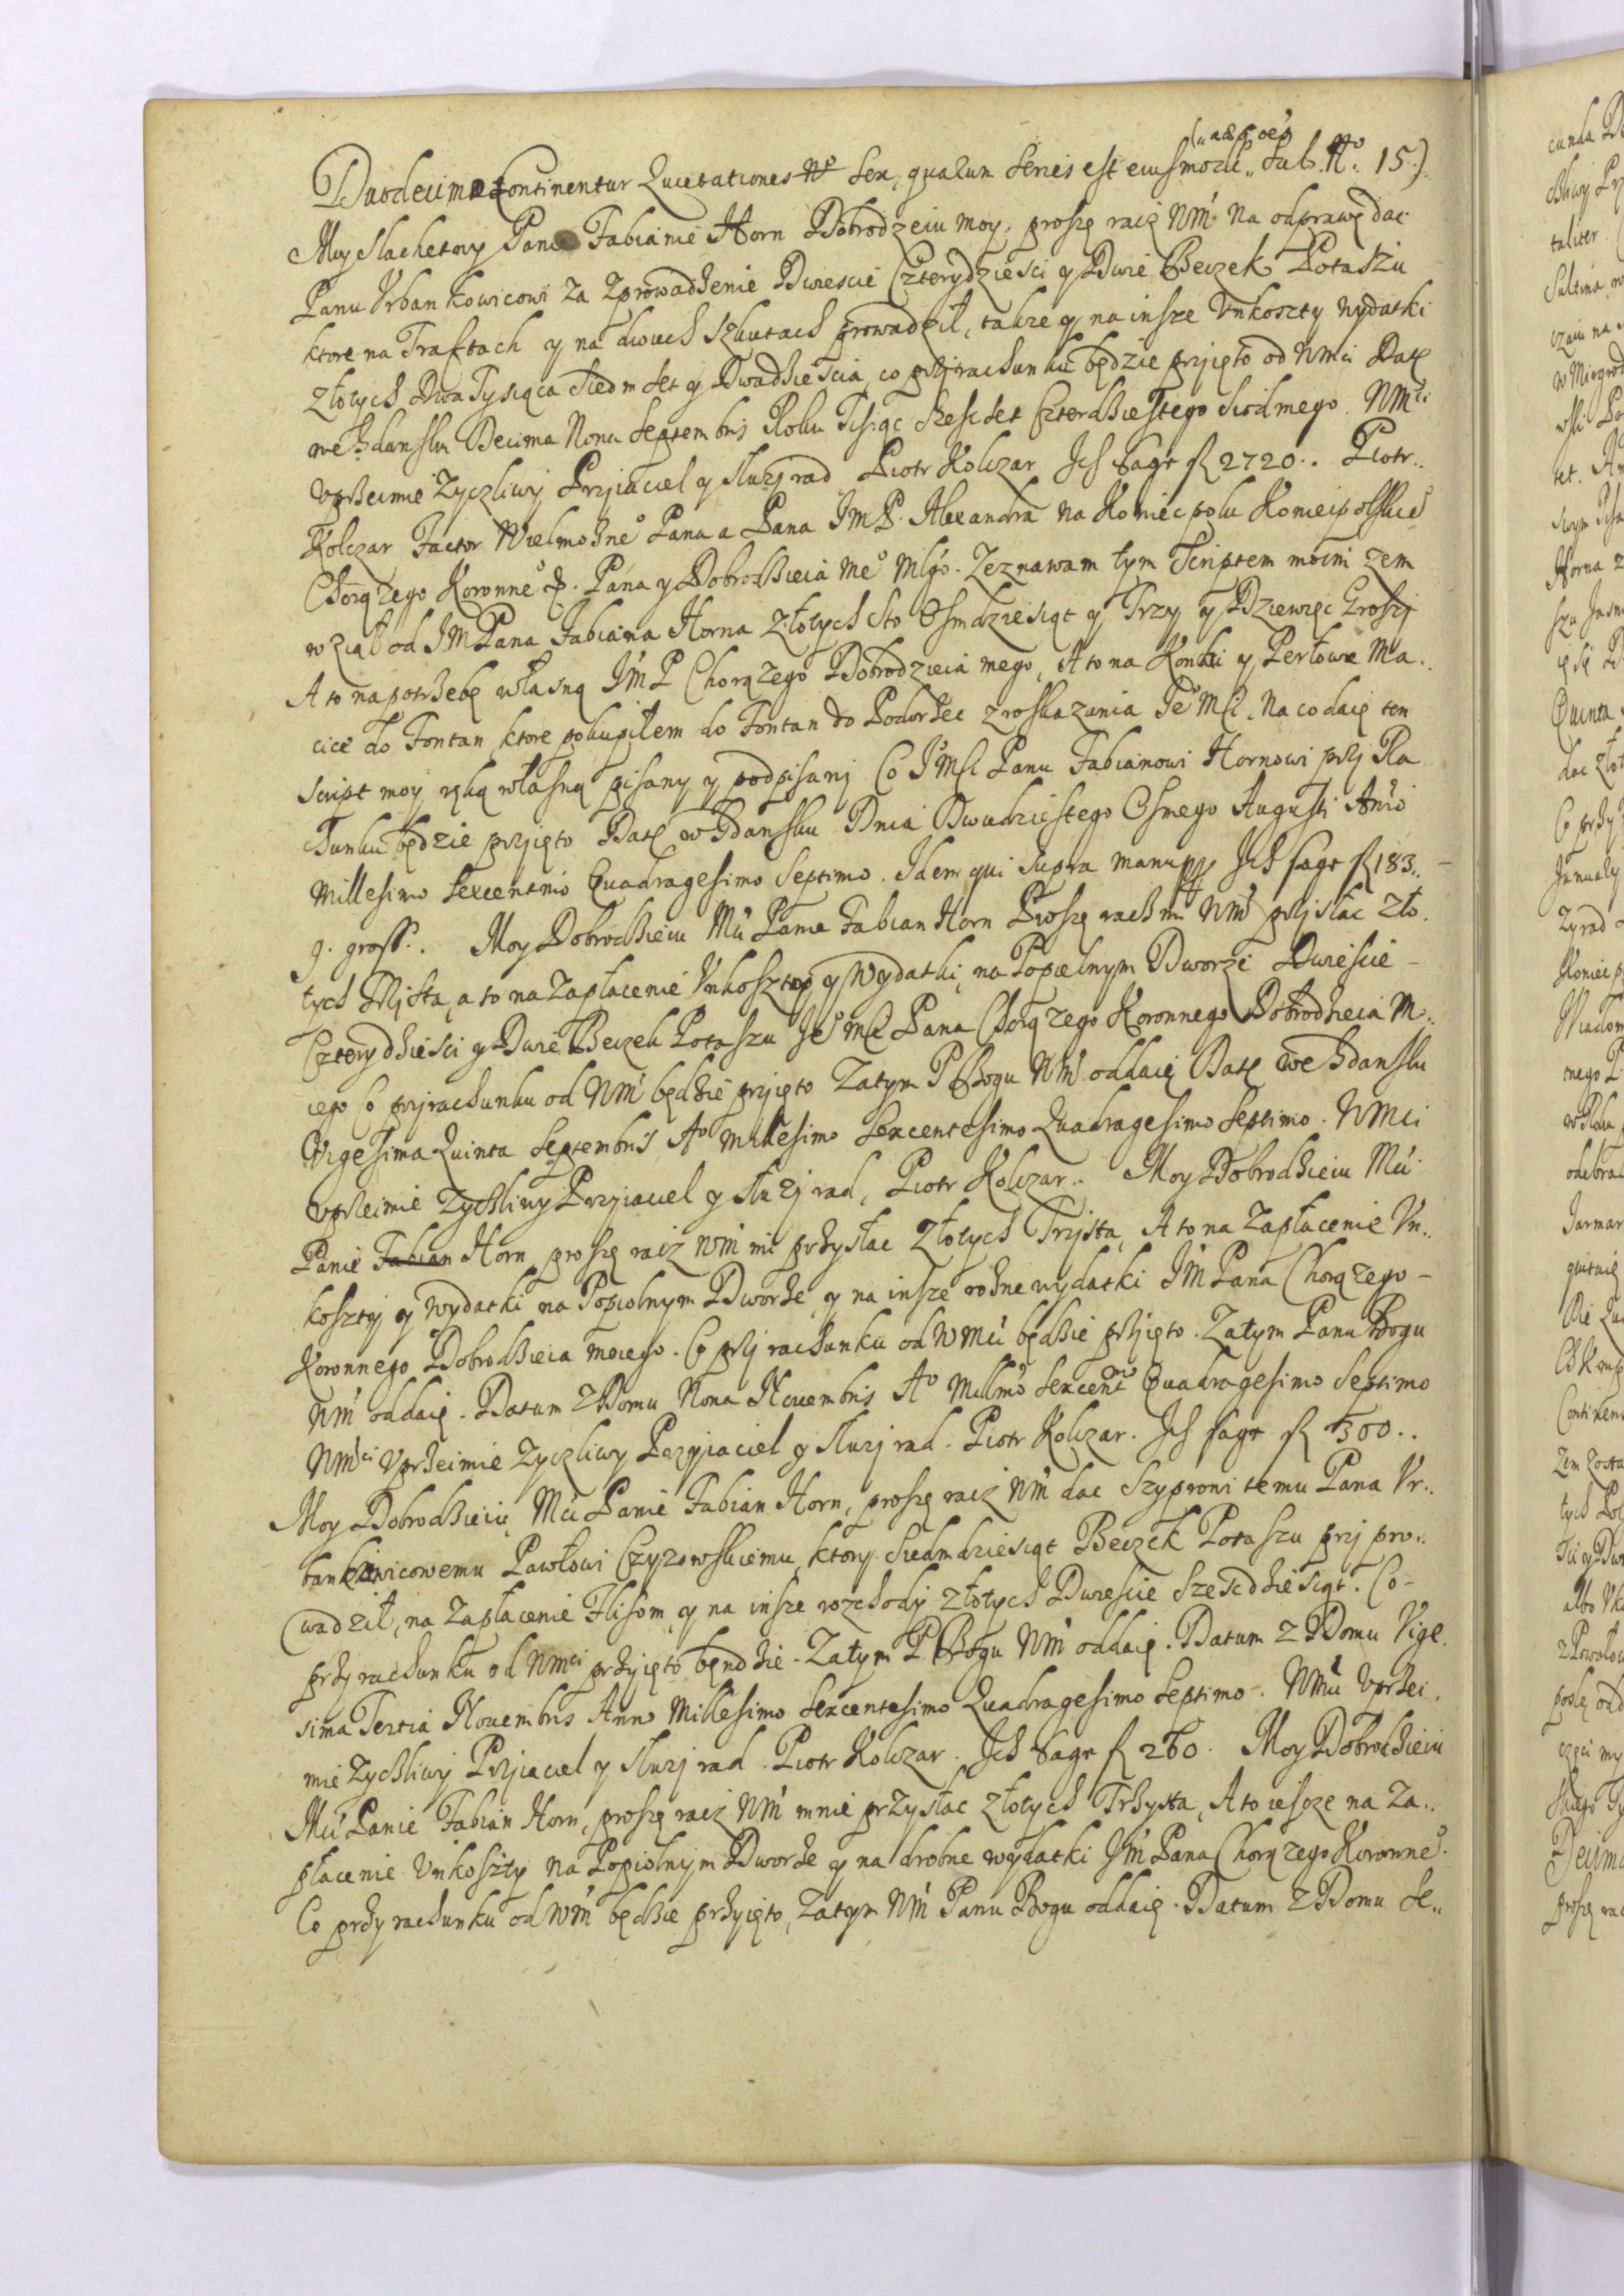 Duodecima Continentur Quietationes sex, qualum series est eiusmodi„ Sub N° 15.)
Moy Slachetny Panie Fabianie Horn Dobrodzeiu moy, proszę racz WM na odprawę dac
Panu Urbankowicowi za Zprowadzenie Dwiescie Czterydziesci y Dwie Beczek Potaszu
ktore na Traftach y na dwuch Szkutach prowadził, takze y na insze Unkoszty wydatki
złotych Dwa Tysiąca Siedm set y Dwadziescia, co przy rachunku będzie przyięto od WMci Datę
we Gdansku Decima Nona Septembris Roku Tisiąc Szescset Czterdziestego Siodmego. WMci
Uprzeimie Zyczliwy Przyiaciel y sluzy rad Piotr Kolczar Ich sage fl 2720.. Piotr..
Kolczar Factor Wielmożne° Pana a Pana JmP. Alexandra na Koniecpolu Koniecpolskie°
Chorązego Koronne° &. Pana y Dobrodzieia me° Mlgo. Zeznawam tym Scriptem moim zem
wziął od JM Pana Fabiana Horna złotych Sto Osmdziesiąt y Trzy y Dziewięc Groszy
A to na potrzebę własną JM P Chorązego Dobrodzieia mego, A to na Konki y Perłowe Ma..
cice do Fontan ktore pokupiłem do Fontan do Podorzec z roskazania Je° Mci, Na co daię ten
script moy ręką własną pisany y podpisany Co JMsci Panu Fabianowi Hornowi przy Ra
chunku będzie przyięto Datę w Gdansku Dnia Dwudziestego Osmego Augusti Anno
Millesimo Sexcentmo Quadragesimo Septimo. Idem qui supra manu ppp Ich sage fl 183.. –
9. gross.. Moy Dobrodzieiu Mci Panie Fabian Horn Proszę rachmi WM przysłac zło.
tych Trzista, a to na Zapłacenie Unkosztow y Wydatki, na Popielnym Dworze Dwiescie –
Czterydziesci y Dwie Beczek Potaszu Je° Mci Pana Chorązego Koronnego Dobrodzieia M..
iego Co przy rachunku od WM będzie przyięto Zatym P Bogu WM oddaię Datę we Gdansku
Vigesima Quinta Septembris A° Millesimo Sexcentesimo Quadragesimo Septimo. WMci
Uprzeimie Zyczliwy Przyiaciel y sluzy rad, Piotr Kolczar.. Moy Dobrodzieiu Mci
Panie Fabian Horn proszę racz WM mi przysłac Złotych Trzista, A to na Zapłacenie Un..
koszty y Wydatki na Popiolnym Dworze, y na insze rozne wydatki JM Pana Chorązego –
Koronnego Dobrodzieia moiego. Co przy rachunku od WMci będzie przyięto. Zatym Panu Bogu
WM oddaię. Datum z Domu Nona Nouembris A° Millmo Sexcentmo Quadragesimo Septimo
WMci Uprzeimie Zyczliwy Przyiaciel y sluzy rad. Piotr Kolczar. Ich sage fl 300..
Moy Dobrodzieiu Mci Panie Fabian Horn, proszę racz WM dac Szyprowi temu Pana Ur..
bankowicowemu Pawłowi Czyzowskiemu, ktory Siedmdziesiąt Beczek Potaszu przy pro..
wadził, na Zapłacenie Flisom, y na insze rozchody złotych Dwiescie Szescdziesiąt. Co –
przy rachunku od WMci przyięto będzie. Zatym P Bogu WM oddaię. Datum z Domu Vige.
sima Tertia Nouembris Anno Millesimo Sexcentesimo Quadragesimo Septimo. WMci Uprzei.
mie Zyczliwy Przyiaciel y sluzy rad. Piotr Kolczar. Ich sage fl 260. Moy Dobrodzieiu
Mci Panie Fabian Horn, proszę racz WM mnie przysłac złotych Trzysta, A to iescze na Za..
płacenie Unkoszty na Popiolnym Dworze y na drobne wydatki JM Pana Chorązego Koronne°.
Co przy rachunku od WM będzie przyięto, Zatym WM Panu Bogu oddaię. Datum z Domu Se..